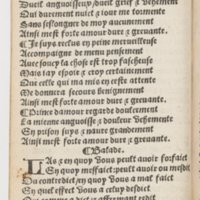 Dueil angoisseux/dueil grief z vehement
Qui durement nuict z iour me tormente
Sans seslongner de moy aucunement
Ainsi mest forte amour dure z greuante.
Je suys recluz en peine merueilleuse
Accompaigne de menu pensement
Auec soucy la chose est trop fascheuse
Mais iay espoir z croy certainement
Que celle qui ma mis en ceste attente
Me donnera secours benignement
Ainsi mest forte amour dure z greuante.
Prince damour regarde doulcement
La mienne angoisse z douleur vehemente
En prison suys z naure grandement
Ainsi mest forte amour dure z greuante.
Balade.
LAs z en quoy vous peult auoir forfaict
Et en quoy meffaict peult ou mesdit
Du contredict/en quoy vous a mal faict
En quel effect vous a ctuy desdict